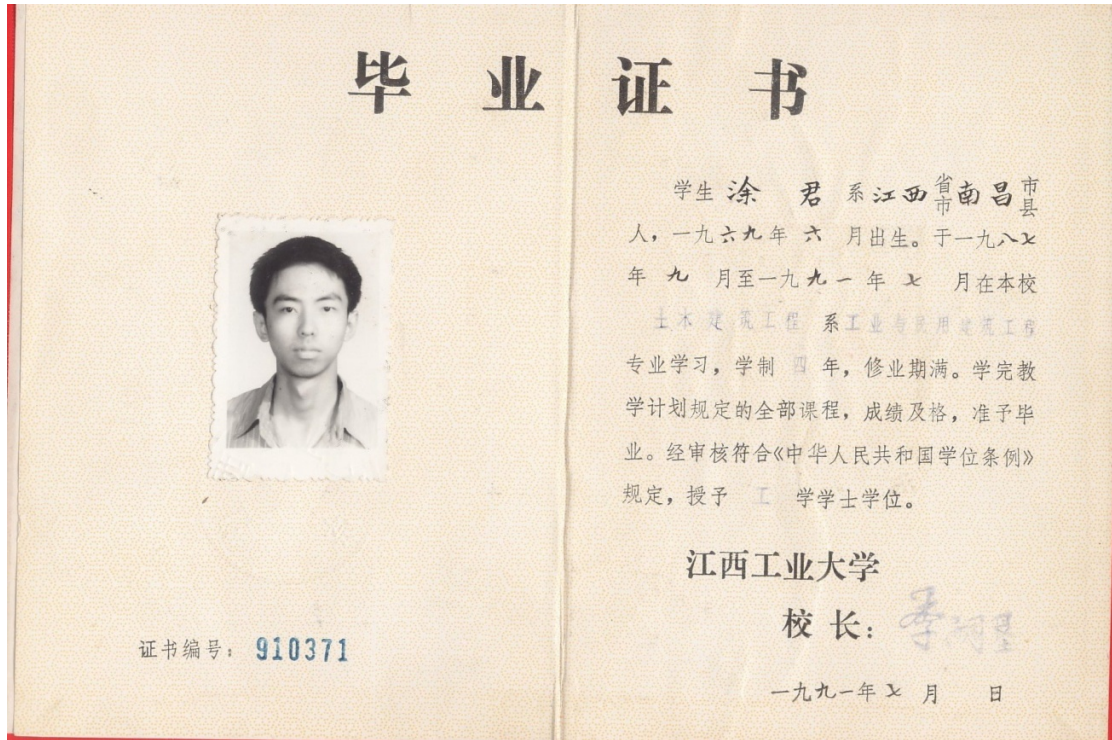 毕业证书
学生 涂 君 系江西省市南昌市县
人，一九六九年 六 月出生。于一九八七
年 九 月至一九九一年 七 月在本校
土木建筑工程 系工业与民用建筑工程
专业学习，学制 四 年，修业期满。学完教
学计划规定的全部课程，成绩及格，准予毕
业。经审核符合《中华人民共和国学位条例》
规定，授予 工 学学士学位。
江西工业大学
校 长：
证书编号：910371
一九九一年七 月 日